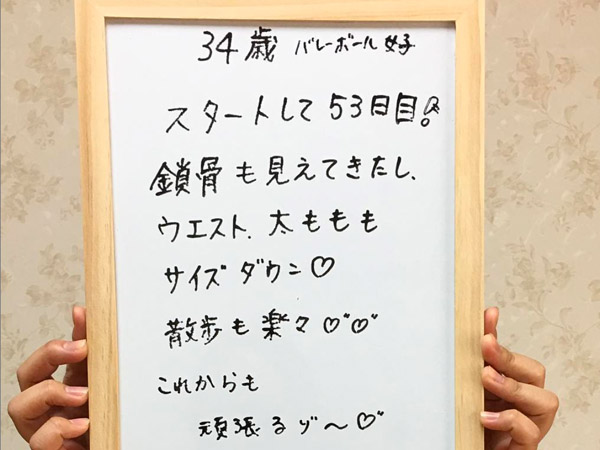 34歳 バレーボール女子
スタートして53日目!
鎖骨も見えてきたし、
ウエスト、太ももも
サイズダウン♡
散歩も楽々♡"♡"
これからも
頑張るゾ〜♡"